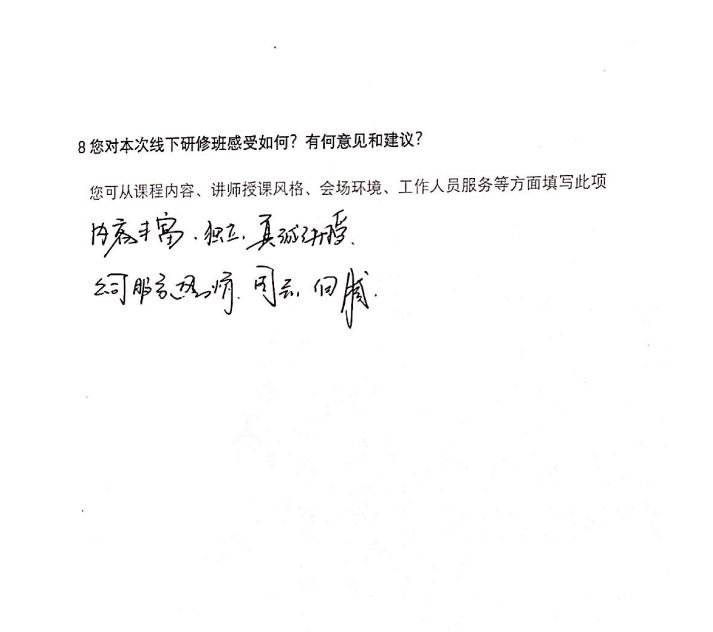 8 您对本次线下研修班感受如何？有何意见和建议？
您可从课程内容、讲师授课风格、会场环境、工作人员服务等方面填写此项
内容丰富、独立、真诚讲授.
公司服务热情、周到、